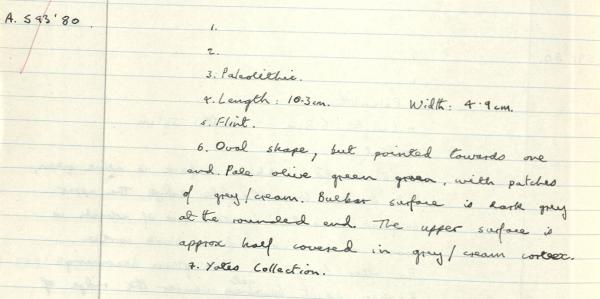 A. S93'80.
1.
2.
3. Paleolithic.
4. Length: 10.3cm. Width: 4.9cm.
5. Flint.
6. Oval shape, but pointed towards one
end. Pale olive green green, with patches
of grey/cream. Bulbar surface is dark grey
at the rounded end. The upper surface is
approx half covered in grey/cream cortex.
7. Yates Collection.